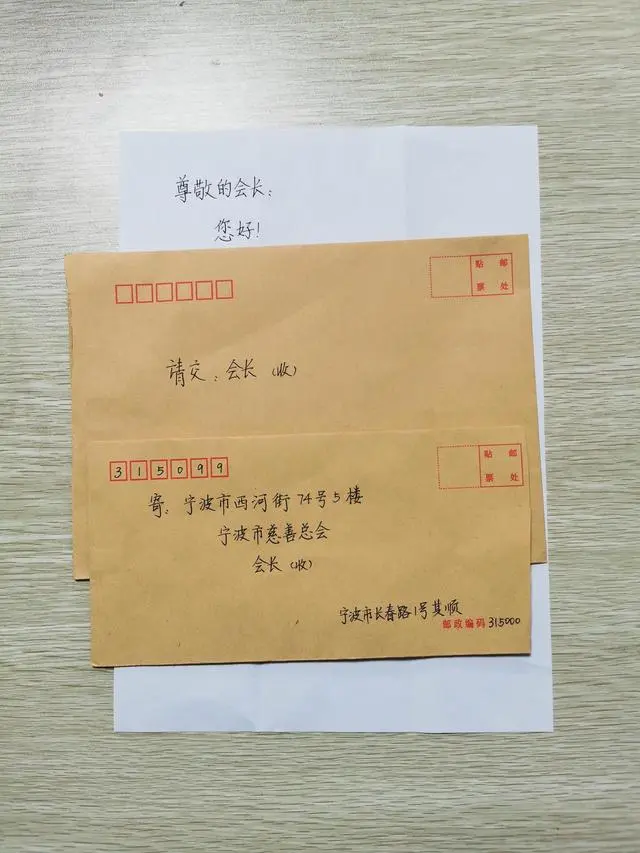 尊敬的会长：
您好！
贴 邮
票 处
请交：会长（收）
315099
贴 邮
票 处
寄：宁波市西河街74号5楼
宁波市慈善总会
会长（收）
宁波市长春路1号其顺
邮政编码315000